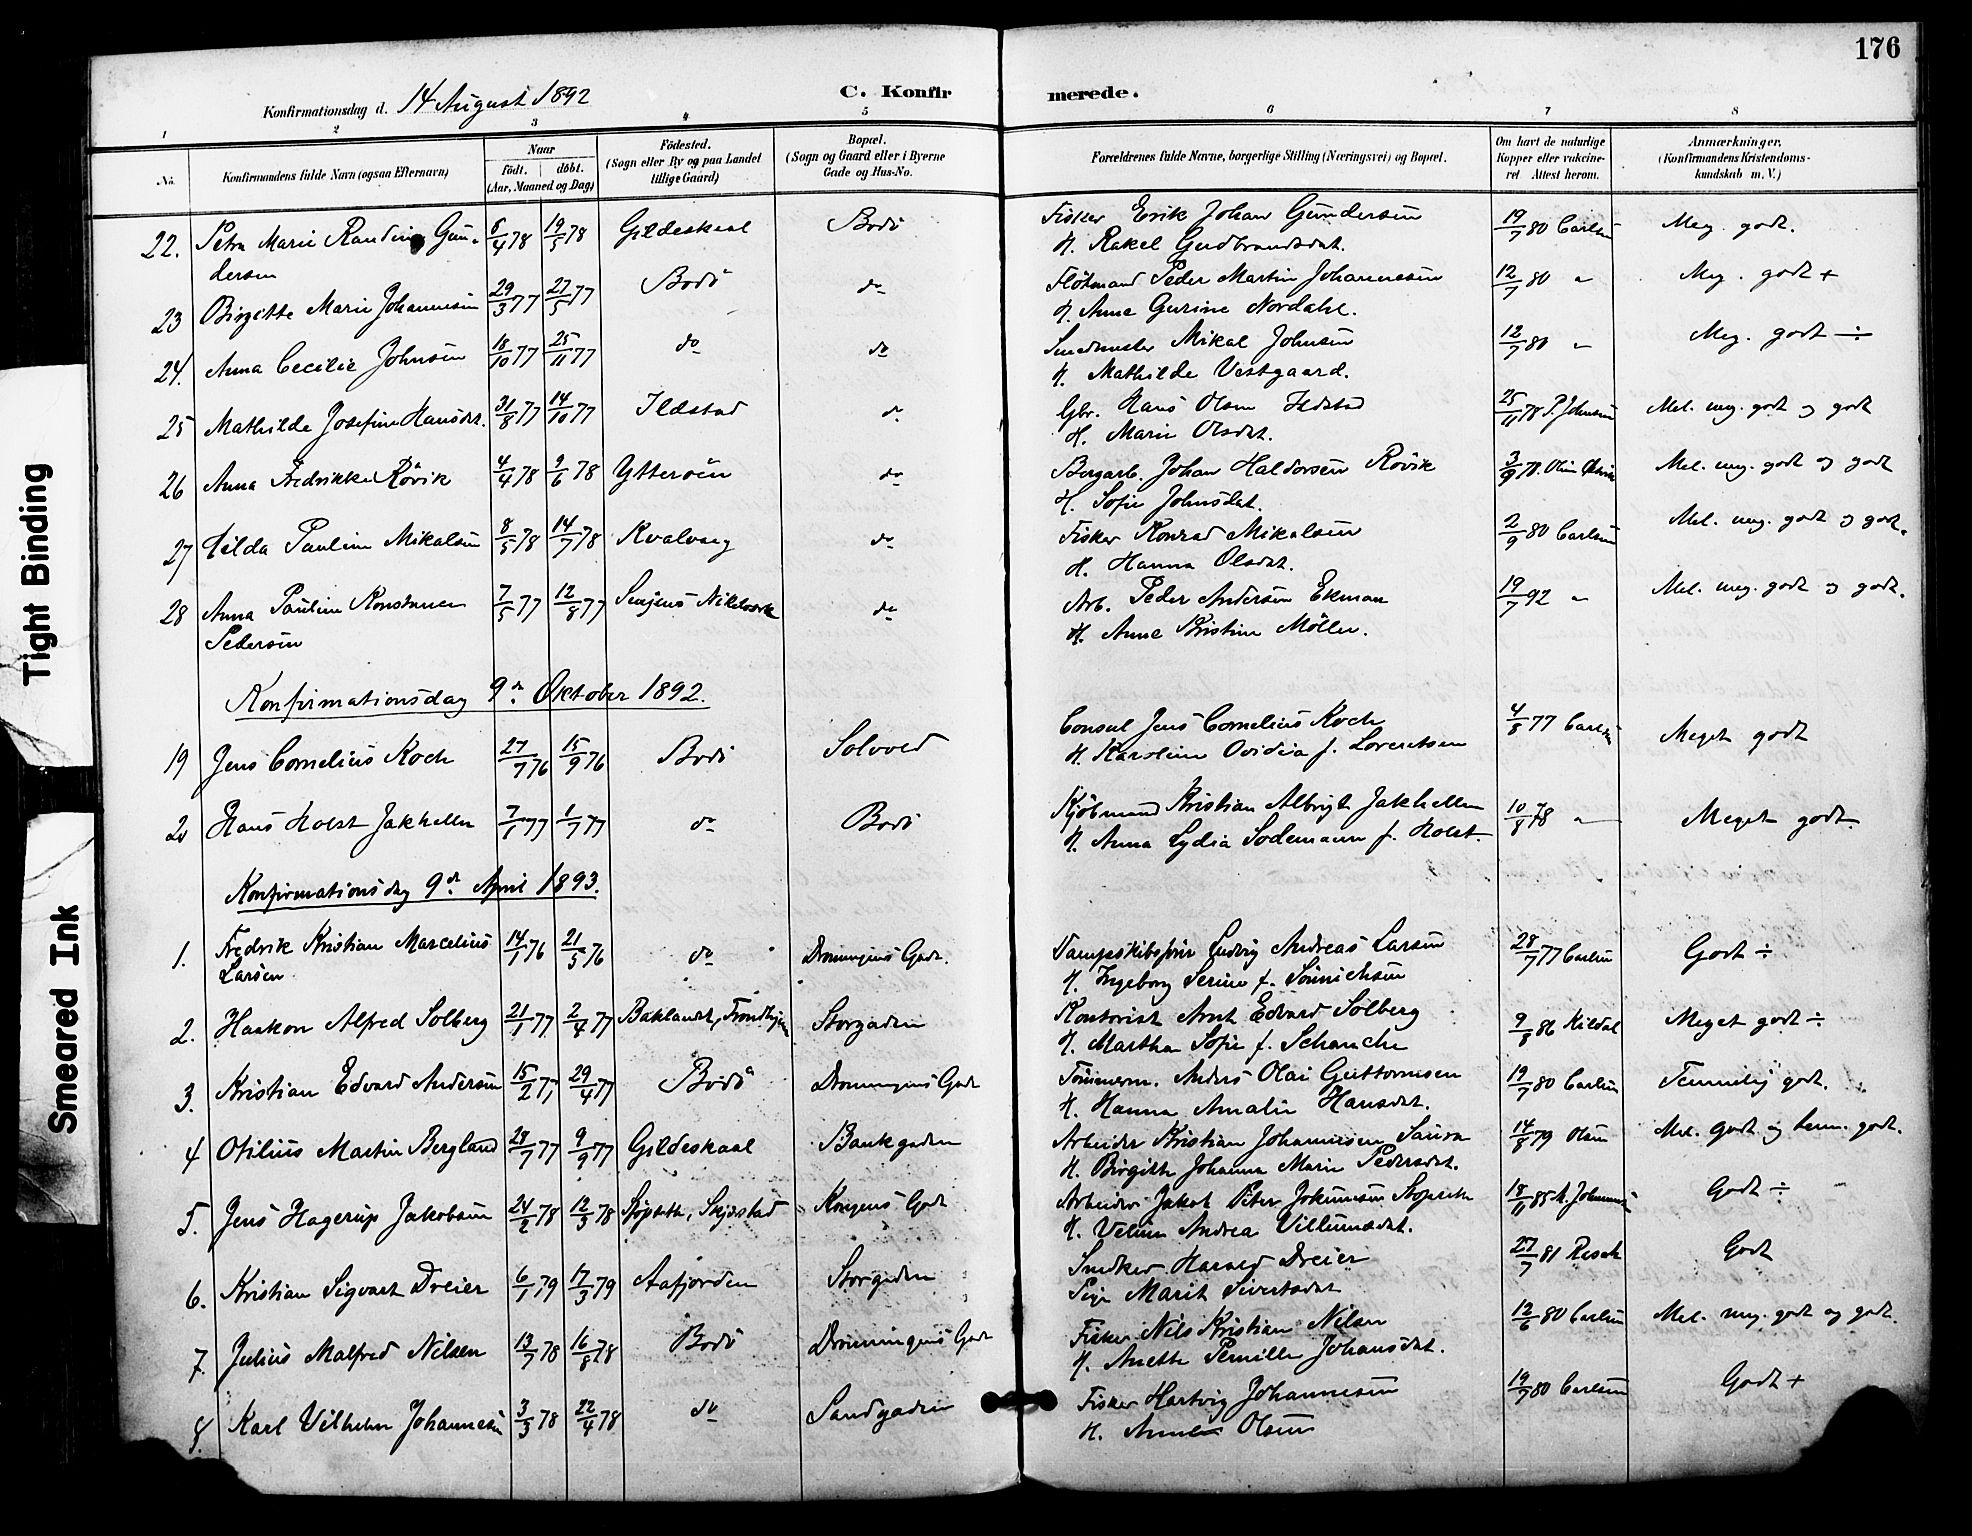 176
Konfirmationsdag d. 14 August 1892
C. Konfirmerede.
1 2 3 4 5 6 7 8
No.
Konfirmandens fulde Navn (ogsaa Efternavn)
Naar
födt. döbt.
(Aar, Maaned og Dag)
Födested.
(Sogn eller By og paa Landet
tillige Gaard)
Bopæl.
(Sogn og Gaard eller i Byerne
Gade og Hus-No.
Forældrenes fulde Navne, borgerlige Stilling (Næringsvei) og Bopæl.
Om havt de naturlige
Kopper eller vakcine-
ret Attest herom.
Anmærkninger.
(Konfirmandens Kristendoms-
kundskab m. V.)
22. Petra Marie Randine Gun- 8/4 78 19/5 78 Gildeskaal Bodö Fisker Erik Johan Gundersen 19/7 80 Carlsen Meg. godt.
dersen H. Rakel Gudbrandsdat.
23 Birgitte Marie Johannesen 29/3 77 27/5 77 Bodö do Flötmand Peder Martin Johannesen 12/7 80 " Meg. godt +
H. Anne Gurine Nordahl.
24. Anna Cecilie Johnsen 18/10 77 25/11 77 do do Smedmester Mikal Johnsen 12/7 80 " Meg. godt ÷
H. Mathilde Vestgaard.
25 Mathilde Josefine Hansdat. 31/8 77 14/10 77 Ildstad do Gbr. Hans Olsen Ildstad 25/11 78 P. Johnsen Mel. meg. godt og godt
H. Marie Olsdat.
26 Anna Fredrikke Rövik 4/4 78 9/6 78 Ytteröen do Bergarb. Johan Haldorsen Rövik 3/9 78. Mel. meg. godt og godt
H. Sofie Johnsdat.
27 Hilda Pauline Mikalsen 8/5 78 14/7 78 Kvalvaag do Fisker Konrad Mikalsen 2/9 80 Carlsen Mel. meg. godt og godt.
H. Hanna Olsdat.
28 Anna Pauline Konstance 7/5 77 12/8 77 Senjens Nikelværk do Arb. Peder Andersen Ekman 19/7 92 " Mel. meg. godt og godt.
Pedersen H. Anne Kristine Möller.
Konfirmationsdag 9de Oktober 1892.
19 Jens Cornelius Koch 27/7 76 15/9 76 Bodö Solvold Consul Jens Cornelius Koch 4/8 77 Carlsen Meget godt
H. Karoline Ovidia f. Lorentsen
20 Hans Holst Jakhelln 7/1 77 1/7 77 do Bodö Kjöbmand Kristian Albrigt Jakhelln 10/8 78 " Meget godt.
H. Anna Lydia Sodemann f. Holst.
Konfirmationsdag 9de April 1893.
1. Fredrik Kristian Marcelius 14/1 76 21/5 76 do Dronningens Gade. Dampskibsförer Ludvig Andreas Larsen 28/7 77 Carlsen Godt ÷
Larsen H. Ingeborg Serine f. Sönnichsen
2. Haakon Alfred Solberg 21/1 77 2/4 77 Baklandet, Trondhjem Storgaden Kontorist Arnt Edvard Solberg 9/8 86 Kildal Meget godt ÷
H. Martha Sofie f. Schanche
3. Kristian Edvard Andersen 15/2 77 29/4 77 Bodö Dronningens Gade Tömmerm. Anders Olai Guttormsen 19/7 80 Carlsen Temmelig godt.
H. Hanna Amalie Hansdat.
4 Otilius Martin Bergland 28/7 77 9/9 77 Gildeskaal Bankgaden Arbeider Kristian Johannesen Saura 14/8 79 Olsen Mel. godt og tem. godt.
H. Birgitte Johanna Marie Pedersdat.
5. Jens Hagerup Jakobsen 24/2 78 12/3 78 Kongens Gade Arbeider Jakob Peter 18/11 85 Godt ÷
H. Andrea Villumsdat.
6. Kristian Sigvart Dreier 6/1 79 17/3 79 Aafjorden Storgaden Snedker Harald Dreier 27/7 81 Godt
Pige Marit Sivertsdat
7. Julius Malfred Nilsen 13/7 78 16/8 78 Bodö Dronningens Gade Fisker Nils Kristian Nilsen 12/6 80 Carlsen Mel. meg. godt og godt.
H. Anette Pernille Johansdat.
8. Karl Vilhelm Johannesen 3/3 78 22/4 78 do Sandgaden Fisker Hartvig Johannesen 19/7 80 Carlsen Godt +
H. Olsen
Tight Binding
Smeared Ink